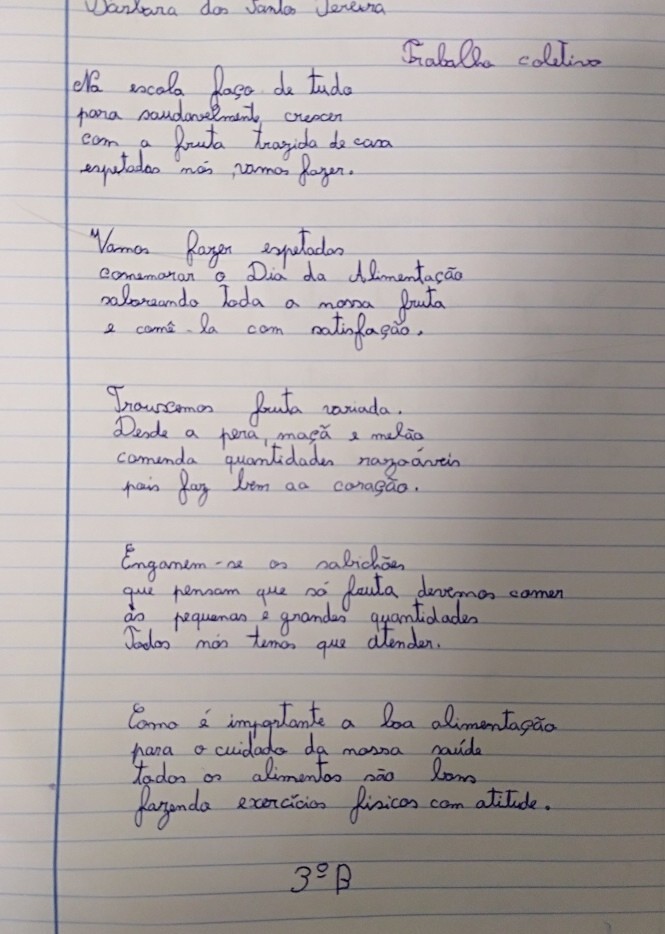 Bárbara dos Santos Pereira
Trabalho coletivo
Na escola faço de tudo
para saudavelmente crescer
com a fruta trazida de casa
espetadas nós vamos fazer.
Vamos fazer espetadas
comemorar o Dia da Alimentação
saboreando toda a nossa fruta
e comê-la com satisfação.
Trouxemos fruta variada.
Desde a pera, maçã e melão
comendo quantidades razoáveis
pois faz bem ao coração.
Enganem-se os sabichões
que pensam que só fruta devemos comer
às pequenas e grandes quantidades
Todos nós temos que atender.
Como é importante a boa alimentação
para o cuidado da nossa saúde
todos os alimentos são bons
fazendo exercícios fisicos com atitude.
3ºB